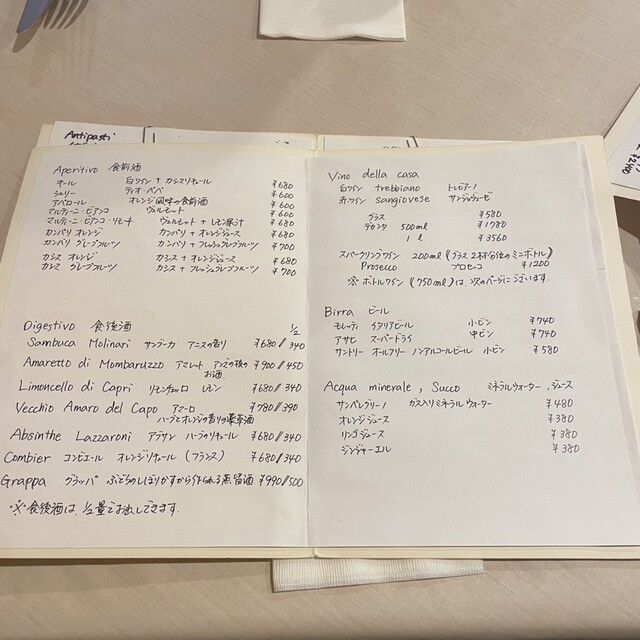 Antipasti
Aperitivo 食前酒
キール 白ワイン + カシスリキュール ¥680
シェリー ティオ・ペペ ¥600
アペロール オレンジ風味の食前酒 ¥600
マルティーニ・ビアンコ ヴェルモット ¥600
マルティーニ・ビアンコ・リモーネ ヴェルモット + レモン果汁 ¥680
カンパリ オレンジ カンパリ + オレンジジュース ¥680
カンパリ グレープフルーツ カンパリ + フレッシュグレープフルーツ ¥700
カシス オレンジ カシス + オレンジジュース ¥680
カシス グレープフルーツ カシス + フレッシュグレープフルーツ ¥700
Digestivo 食後酒 1/2
Sambuca Molinari サンブーカ アニスの香り ¥680/340
Amaretto di Mombaruzzo アマレット アンズの核のお酒 ¥900/450
Limoncello di Capri リモンチェッロ レモン ¥680/340
Vecchio Amaro del Capo アマーロ ¥780/390
ハーブとオレンジの香りの薬草酒
Absinthe Lazzaroni アブサン ハーブのリキュール ¥680/340
Combier コンビエール オレンジリキュール (フランス) ¥680/340
Grappa グラッパ ぶどうのしぼりかすから作られる蒸留酒 ¥990/500
※食後酒は、1/2量でお出しできます.
Vino della casa
白ワイン trebbiano トレビアーノ
赤ワイン sangiovese サンジョヴェーゼ
グラス ¥580
デカンタ 500ml ¥1780
1 l ¥3560
スパークリングワイン 200ml (グラス2杯分位のミニボトル)
Prosecco プロセッコ ¥1200
※ ボトルワイン (750ml) は、次のページにございます.
Birra ビール
モレッティ イタリアビール 小ビン ¥740
アサヒ スーパードライ 中ビン ¥740
サントリー オールフリー ノンアルコールビール 小ビン ¥580
Acqua minerale, Succo ミネラルウォーター、ジュース
サンペレグリーノ ガス入りミネラルウォーター ¥480
オレンジジュース ¥380
リンゴジュース ¥380
ジンジャーエール ¥380